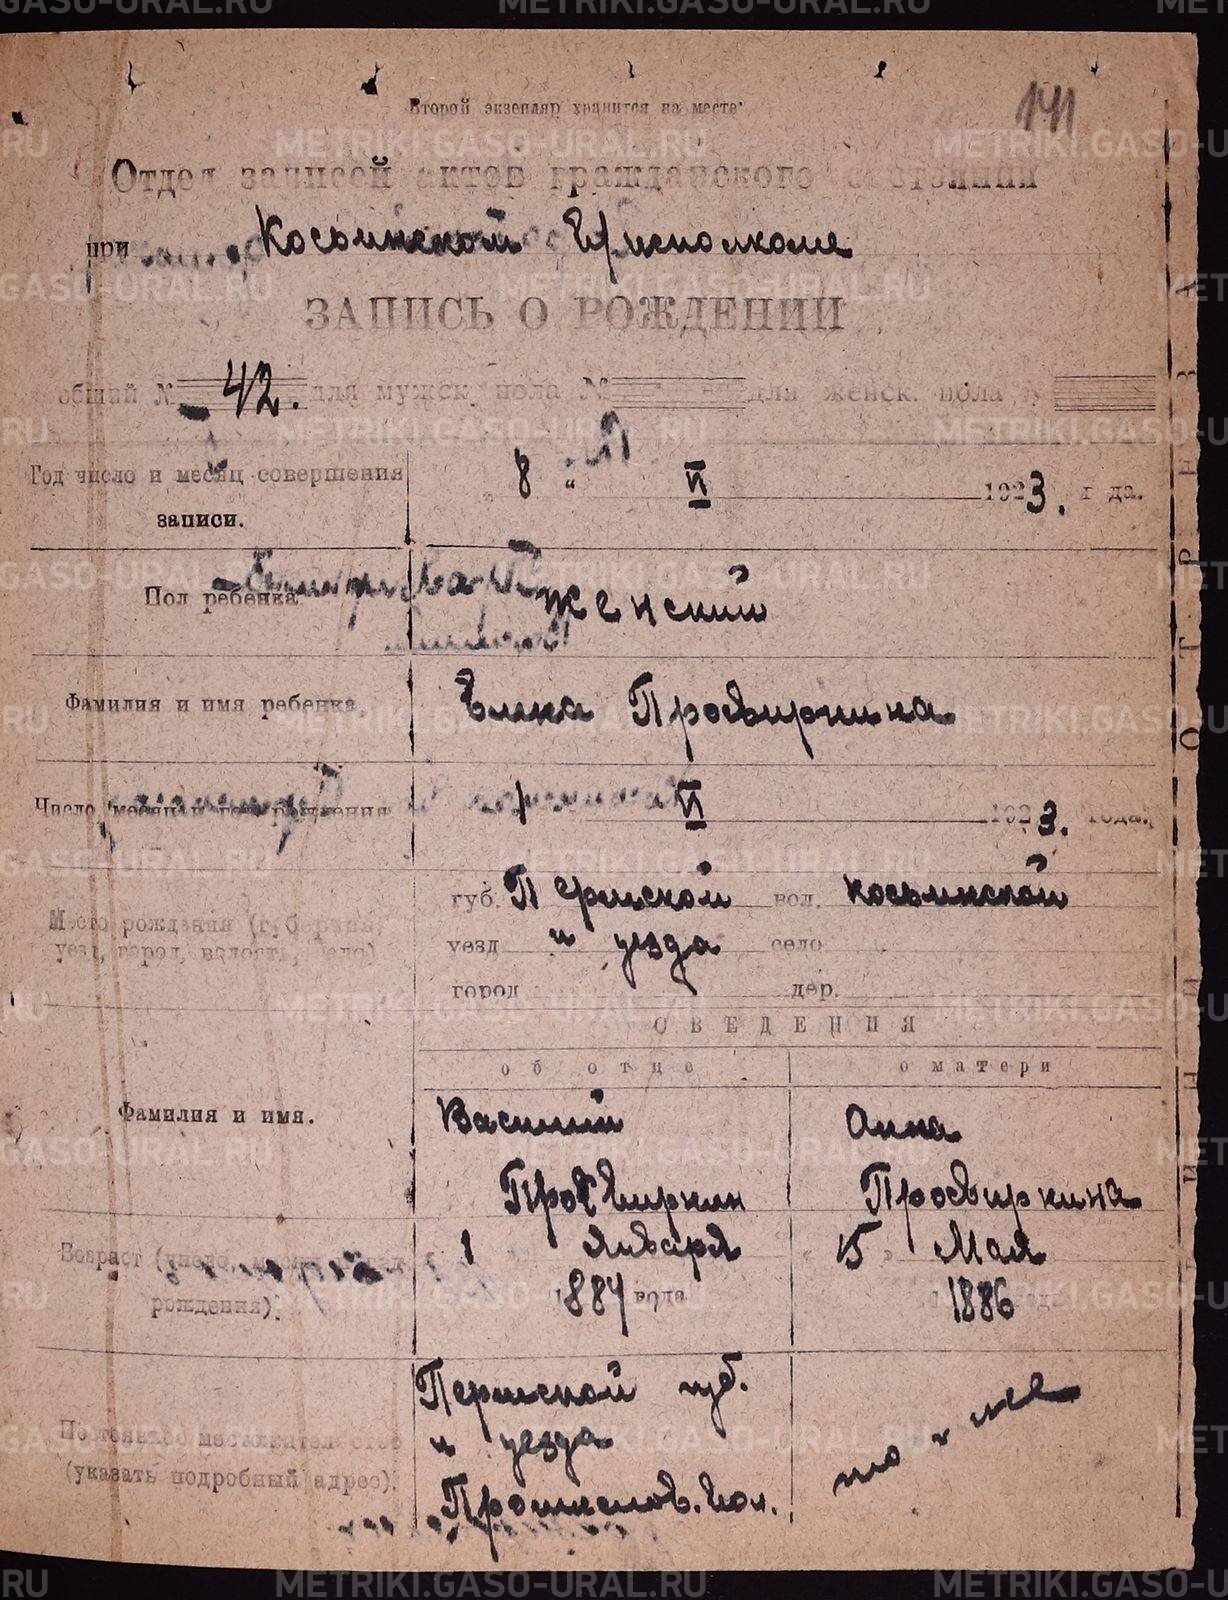 Второй экземпляр хранится на месте
141
Отдел записей актов гражданского состояния
при Косьинской
ЗАПИСЬ О РОЖДЕНИИ
общий № 42. для мужск. пола № для женск. пола №
Год число и месяц совершения записи.
„ 8 “ VI 1923. года.
Пол ребенка
Женский
Фамилия и имя ребенка.
Елена Просвиркина
Число, месяц и год рождения
1 VI 1923. года.
Место рождения (губерния, уезд, город, волость, село)
губ. Пермской вол. Косьинской
уезд и уезда село
город дер.
СВЕДЕНИЯ
об отце
о матери
Фамилия и имя.
Василий
Просвиркин
Анна
Просвиркина
Возраст (число, месяц и год рождения).
1 Января
1884 года
15 Мая
1886 года
Постоянное местожительство (указать подробный адрес).
Пермской губ.
и уезда
то и же
ОТРЕЗНАЯ
METRIKI.GASO-URAL.RU